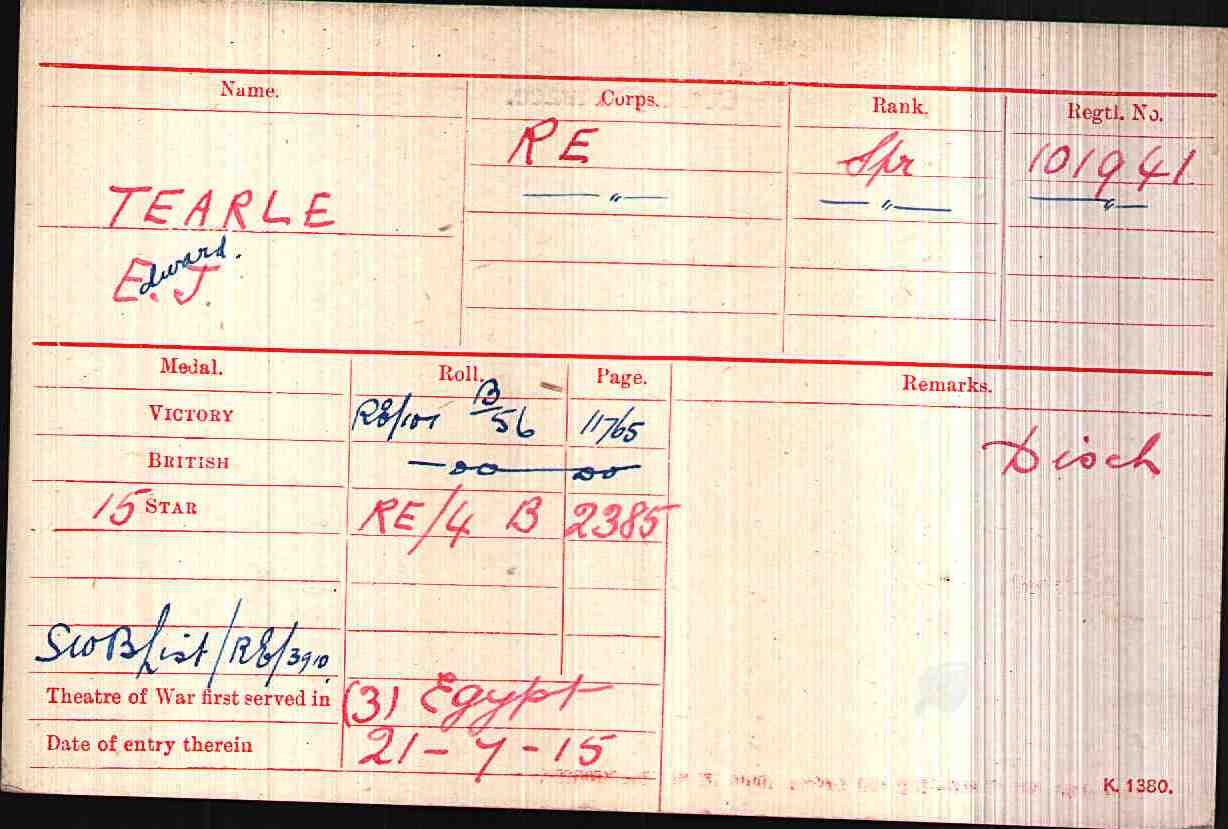 Name. Corps. Rank. Regtl. No.
RE Spr 101941
—"— —"— —"—
TEARLE
E. J. Edward.
Medal. Roll. Page. Remarks.
VICTORY RE/101 B/56 11765
BRITISH —do— do
Disch
15 STAR RE/4 B 2385
SWB List/RE/3910
Theatre of War first served in (3) Egypt
Date of entry therein 21-7-15
K. 1380.